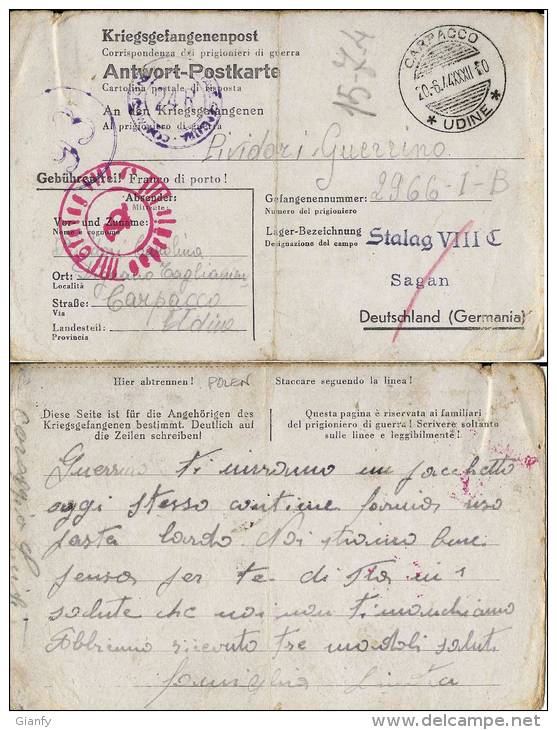 Kriegsgefangenenpost
Corrispondenza dei prigionieri di guerra
Antwort-Postkarte
Cartolina postale di risposta
An den Kriegsgefangenen
Al prigioniero di guerra
15-7-4
CARPACCO
20.6.44XXII 20
* UDINE *
Pividori Guerrino
Gebührenfrei! Franco di porto!
Absender:
Mittente:
Vor- und Zuname:
Nome e cognome
Carolina
Ort:
Località
Straße: Carpacco
Via
Landesteil: Udine
Provincia
Gefangenennummer: 2966-I-B
Numero del prigioniero
Lager-Bezeichnung Stalag VIII C
Designazione del campo
Sagan
Deutschland (Germania)
Hier abtrennen! POLEN Staccare seguendo la linea!
Diese Seite ist für die Angehörigen des
Kriegsgefangenen bestimmt. Deutlich auf
die Zeilen schreiben!
Questa pagina è riservata ai familiari
del prigioniero di guerra! Scrivere soltanto
sulle linee e leggibilmente!
Guerrino ti inviamo un pacchetto
oggi stesso contiene farina riso
pasta lardo Noi stiamo bene
pensa per te di
salute che noi non ti manchiamo
Abbiamo ricevuto tre moduli saluti
famiglia
Gianfy
www.delcampe.net